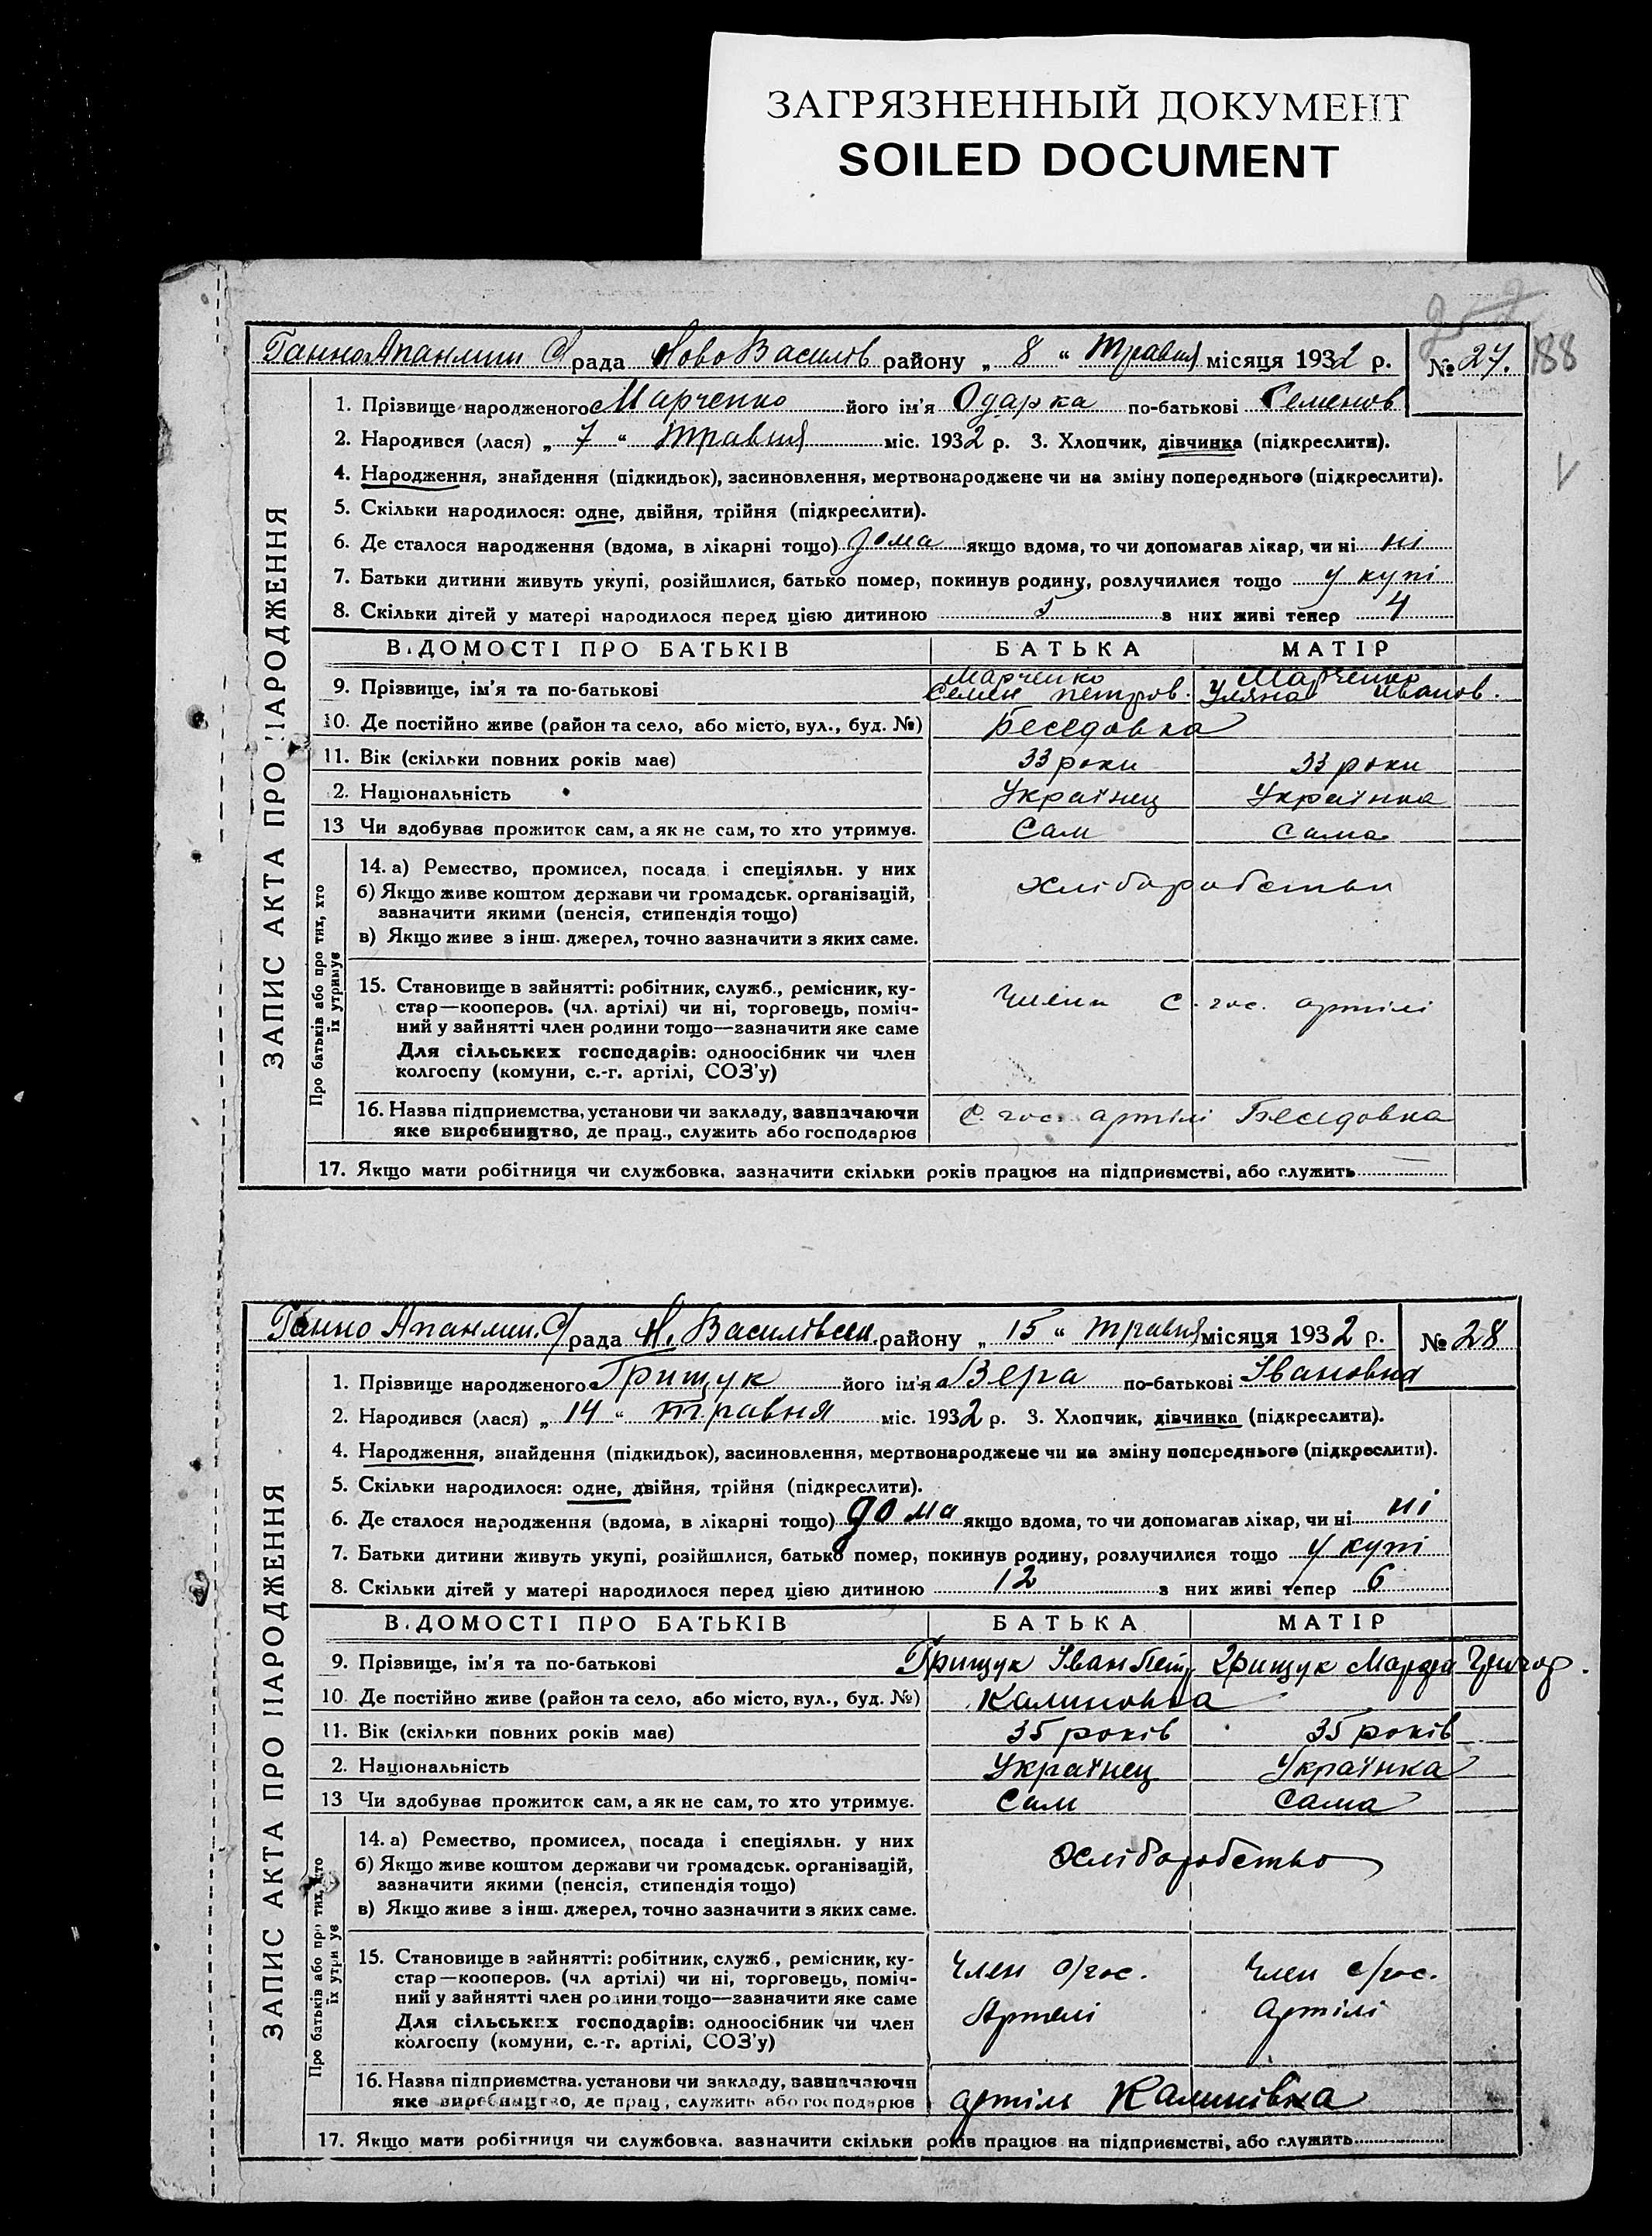 ЗАГРЯЗНЕННЫЙ ДОКУМЕНТ
SOILED DOCUMENT
188
Ганно Апанлин С/рада Ново Василів району „ 8 “ травня місяця 1932 р. № 27.
1. Прізвище народженого Марченко його ім'я Одарка по-батькові Семенов
2. Народився (лася) „ 7 “ травня міс. 1932 р. 3. Хлопчик, дівчинка (підкреслити).
4. Народження, знайдення (підкидьок), засиновлення, мертвонароджене чи на зміну попереднього (підкреслити).
5. Скільки народилося: одне, двійня, трійня (підкреслити).
6. Де сталося народження (вдома, в лікарні тощо) дома якщо вдома, то чи допомагав лікар, чи ні ні
7. Батьки дитини живуть укупі, розійшлися, батько помер, покинув родину, розлучилися тощо у купі
8. Скільки дітей у матері народилося перед цією дитиною 5 з них живі тепер 4
ЗАПИС АКТА ПРО НАРОДЖЕННЯ
В.ДОМОСТІ ПРО БАТЬКІВ БАТЬКА МАТІР
Марченко Марченко
9. Прізвище, ім'я та по-батькові Семен петров. Уляна иванов.
10. Де постійно живе (район та село, або місто, вул., буд. №) Беседовка
11. Вік (скільки повних років має) 33 роки 33 роки
2. Національність Українец Українка
13 Чи здобуває прожиток сам, а як не сам, то хто утримує. Сам сама
Про батьків або про тих, хто
їх утримує
14. а) Ремество, промисел, посада і спеціяльн. у них
б) Якщо живе коштом держави чи громадськ. організацій, хліборобства
зазначити якими (пенсія, стипендія тощо)
в) Якщо живе з інш. джерел, точно зазначити з яких саме.
15. Становище в зайнятті: робітник, служб., ремісник, ку-
стар—кооперов. (чл. артілі) чи ні, торговець, поміч- члени с. гос. артілі
ний у зайнятті член родини тощо—зазначити яке саме
Для сільських господарів: одноосібник чи член
колгоспу (комуни, с.-г. артілі, СОЗ'у)
16. Назва підприємства, установи чи закладу, зазначаючи С гос артілі Беседовка
яке виробництво, де прац., служить або господарює
17. Якщо мати робітниця чи службовка, зазначити скільки років працює на підприємстві, або служить
Ганно Апанлин. С/рада Н. Василівськ. району „ 15 “ травня місяця 1932 р. № 28
1. Прізвище народженого Грищук його ім'я Вера по-батькові Івановна
2. Народився (лася) „ 14 “ травня міс. 1932 р. 3. Хлопчик, дівчинка (підкреслити).
4. Народження, знайдення (підкидьок), засиновлення, мертвонароджене чи на зміну попереднього (підкреслити).
5. Скільки народилося: одне, двійня, трійня (підкреслити).
6. Де сталося народження (вдома, в лікарні тощо) дома якщо вдома, то чи допомагав лікар, чи ні ні
7. Батьки дитини живуть укупі, розійшлися, батько помер, покинув родину, розлучилися тощо у купі
8. Скільки дітей у матері народилося перед цією дитиною 12 з них живі тепер 6
ЗАПИС АКТА ПРО НАРОДЖЕННЯ
В.ДОМОСТІ ПРО БАТЬКІВ БАТЬКА МАТІР
9. Прізвище, ім'я та по-батькові Грищук Іван Пет Грищук Марфа Григор.
10. Де постійно живе (район та село, або місто, вул., буд. №) Калиновка
11. Вік (скільки повних років має) 35 років 35 років
2. Національність Українец Українка
13 Чи здобуває прожиток сам, а як не сам, то хто утримує. Сам Сама
Про батьків або про тих, хто
їх утримує
14. а) Ремество, промисел, посада і спеціяльн. у них
б) Якщо живе коштом держави чи громадськ. організацій, хліборобство
зазначити якими (пенсія, стипендія тощо)
в) Якщо живе з інш. джерел, точно зазначити з яких саме.
15. Становище в зайнятті: робітник, служб., ремісник, ку- Член с/гос. Член с/гос.
стар—кооперов. (чл артілі) чи ні, торговець, поміч-
ний у зайнятті член родини тощо—зазначити яке саме Артелі Артілі
Для сільських господарів: одноосібник чи член
колгоспу (комуни, с.-г. артілі, СОЗ'у)
16. Назва підприємства, установи чи закладу, зазначаючи артіль Калинівка
яке виробництво, де прац., служить або господарює
17. Якщо мати робітниця чи службовка, зазначити скільки років працює на підприємстві, або служить